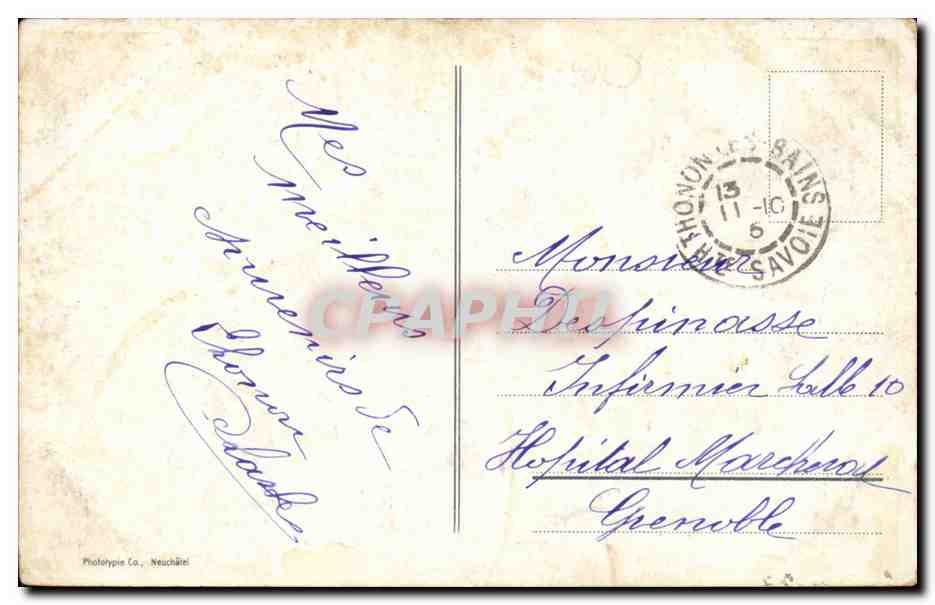 Mes
meilleurs
souvenirs de
Thonon
THONON-LES-BAINS
13
11 -10
5
HTE SAVOIE
Monsieur
Despinasse
Infirmier Salle 10
Hopital
Grenoble
CPAPHIL
Phototypie Co., Neuchâtel